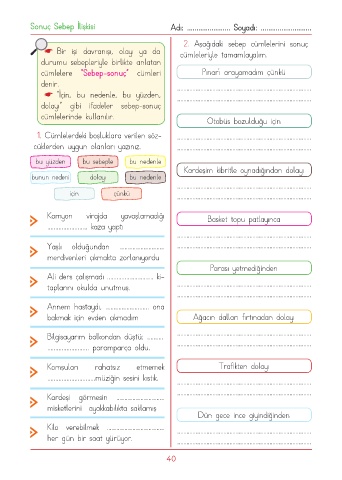 Sonuç Sebep İlişkisi
Adı: ..................... Soyadı: .........................
Bir işi davranışı, olay ya da
durumu sebepleriyle birlikte anlatan
cümlelere "Sebep-sonuç" cümleri
denir.
"İçin, bu nedenle, bu yüzden,
dolayı" gibi ifadeler sebep-sonuç
cümlelerinde kullanılır.
1. Cümlelerdeki boşluklara verilen söz-
cüklerden uygun olanları yazınız.
bu yüzden bu sebeple bu nedenle
bunun nedeni dolayı bu nedenle
için çünkü
Kamyon virajda yavaşlamadığı
.................... kaza yaptı.
Yaşlı olduğundan ......................
merdivenleri çıkmakta zorlanıyordu.
Ali ders çalışmadı ....................... ki-
taplarını okulda unutmuş.
Annem hastaydı, ...................... ona
bakmak için evden çıkmadım.
Bilgisayarım balkondan düştü; .........
..................... paramparça oldu.
Komşuları rahatsız etmemek
.......................müziğin sesini kıstık.
Kardeşi görmesin ........................
misketlerini ayakkabılıkta saklamış
Kilo verebilmek .............................
her gün bir saat yürüyor.
2. Aşağıdaki sebep cümlelerini sonuç
cümleleriyle tamamlayalım.
Pınarı arayamadım çünkü
Otobüs bozulduğu için
Kardeşim kibritle oynadığından dolayı
Basket topu patlayınca
Parası yetmediğinden
Ağacın dalları fırtınadan dolayı
Trafikten dolayı
Dün gece ince giyindiğinden
40